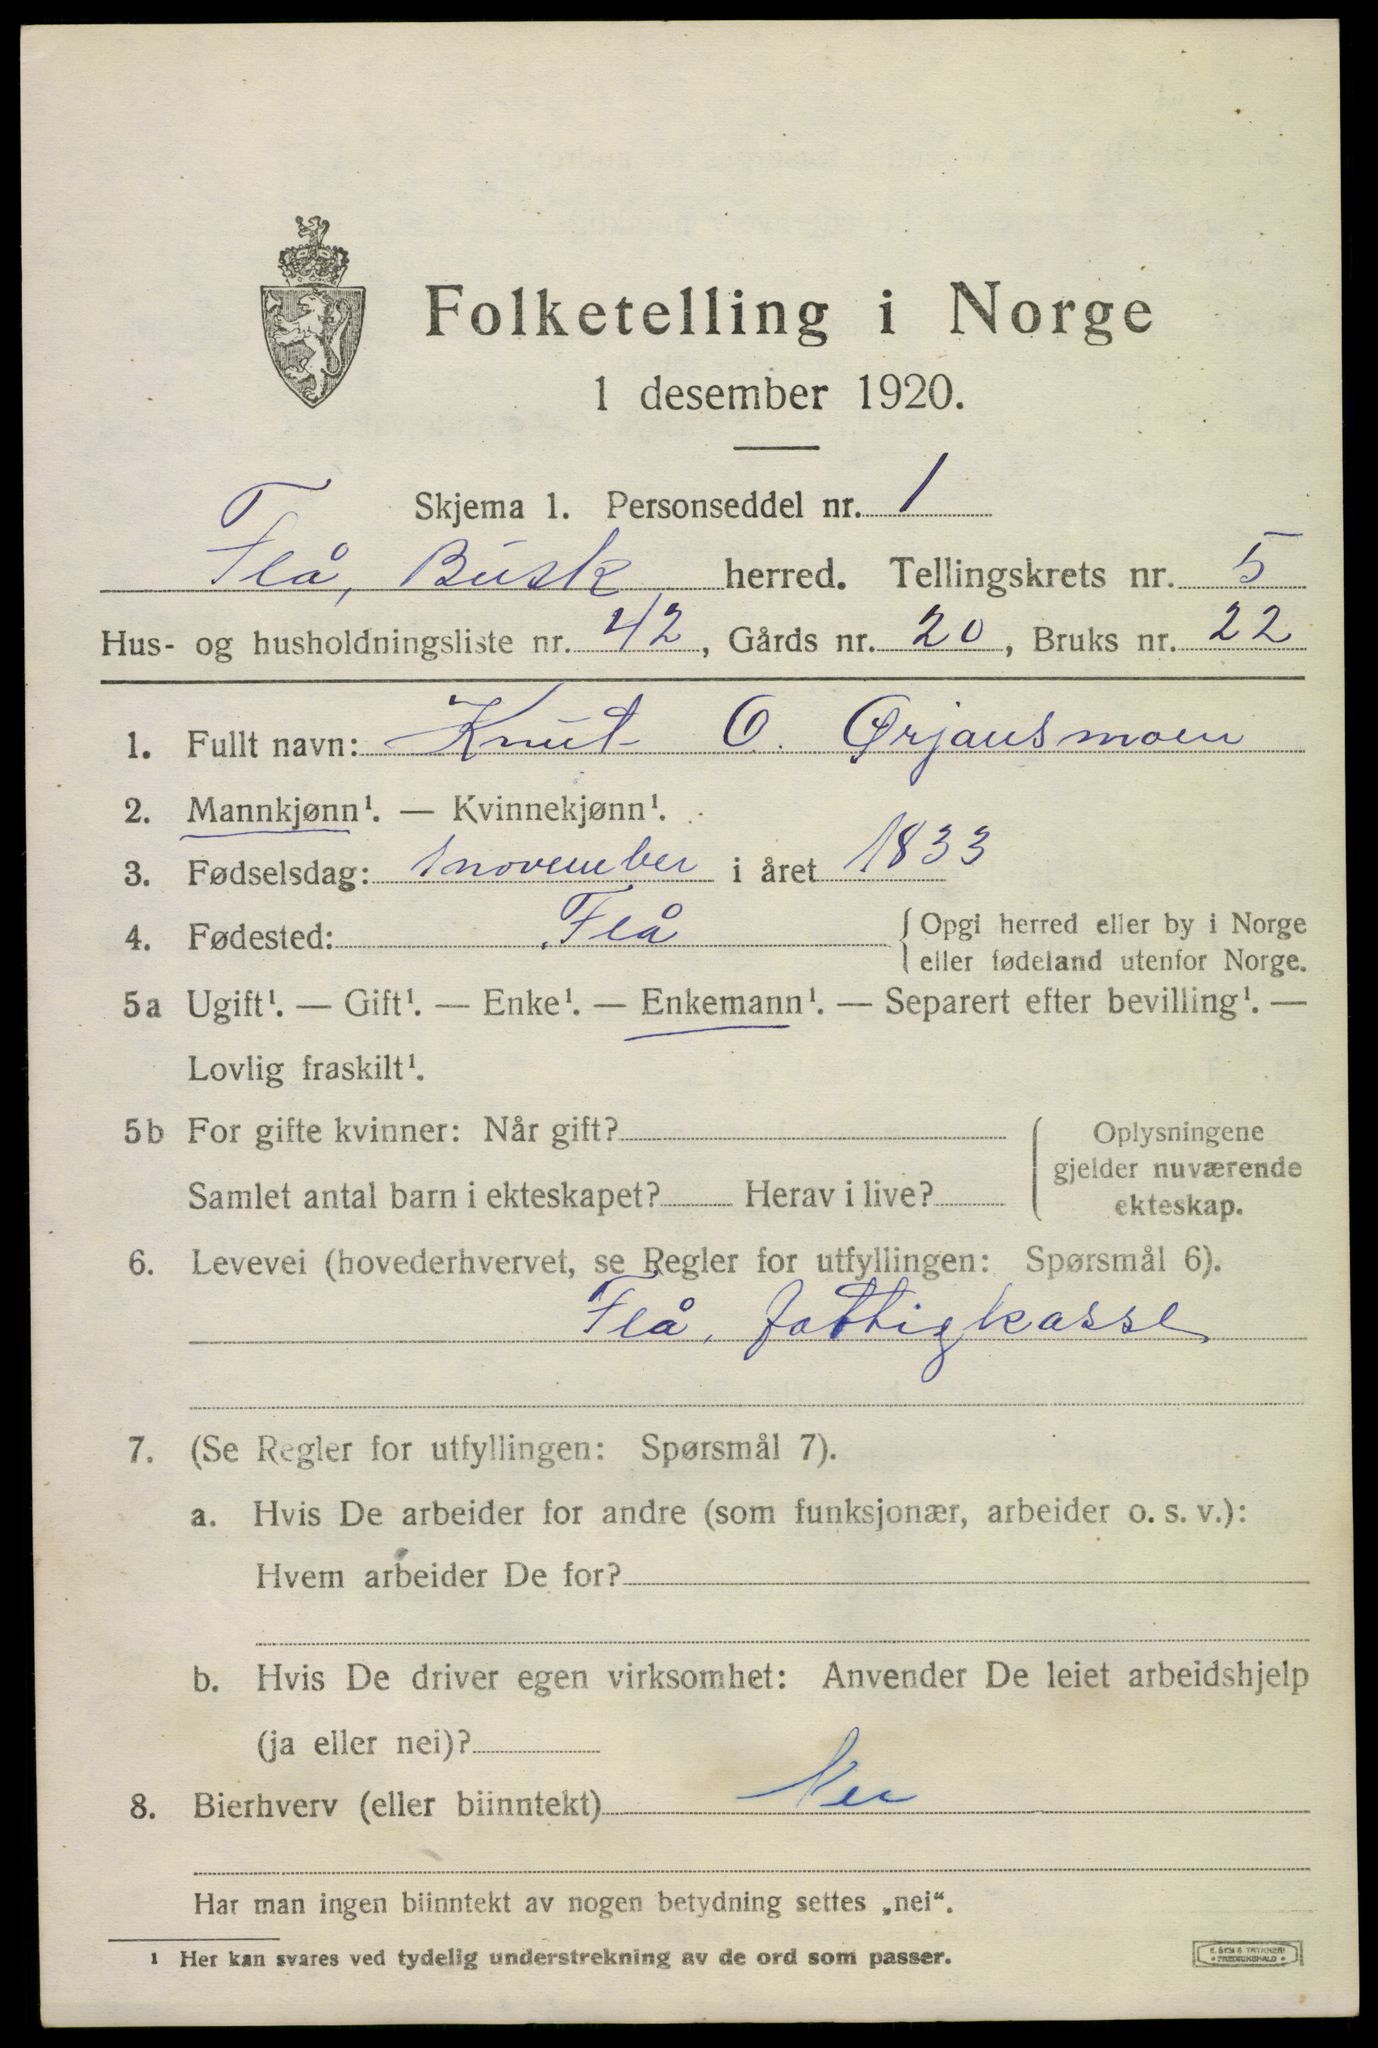 Folketelling i Norge
1 desember 1920.
Skjema 1. Personseddel nr. 1
Flå, Busk herred. Tellingskrets nr. 5
Hus- og husholdningsliste nr. 42, Gårds nr. 20, Bruks nr. 22
1. Fullt navn: Knut O. Ørjansmoen
2. Mannkjønn¹. — Kvinnekjønn¹.
3. Fødselsdag: 1 november i året 1833
4. Fødested: Flå { Opgi herred eller by i Norge
eller fødeland utenfor Norge.
5a Ugift¹. — Gift¹. — Enke¹. — Enkemann¹. — Separert efter bevilling¹. —
Lovlig fraskilt¹.
5b For gifte kvinner: Når gift? Oplysningene
gjelder nuværende
Samlet antal barn i ekteskapet? Herav i live? ekteskap.
6. Levevei (hovederhvervet, se Regler for utfyllingen: Spørsmål 6).
Flå, fattigkasse
7. (Se Regler for utfyllingen: Spørsmål 7).
a. Hvis De arbeider for andre (som funksjonær, arbeider o. s. v.):
Hvem arbeider De for?
b. Hvis De driver egen virksomhet: Anvender De leiet arbeidshjelp
(ja eller nei)?
8. Bierhverv (eller biinntekt) Nei
Har man ingen biinntekt av nogen betydning settes „nei“.
¹ Her kan svares ved tydelig understrekning av de ord som passer.